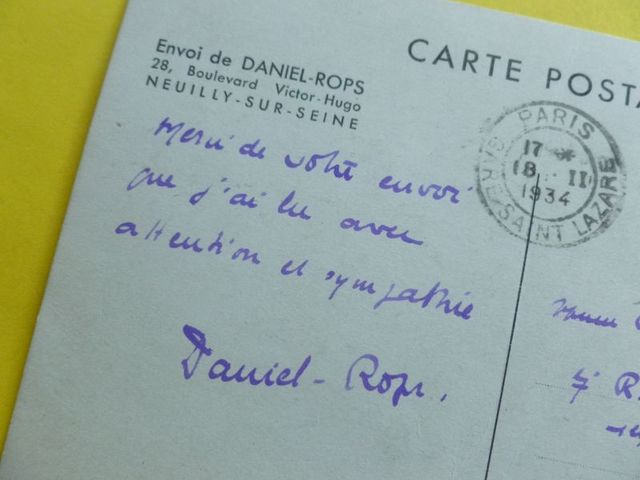 Envoi de DANIEL-ROPS
28, Boulevard Victor-Hugo
NEUILLY-SUR-SEINE
CARTE POSTA
PARIS
17
18 II
1934
GARE SAINT LAZARE
Merci de votre envoi
que j'ai lu avec
attention et sympathie
Daniel-Rops.
7 R